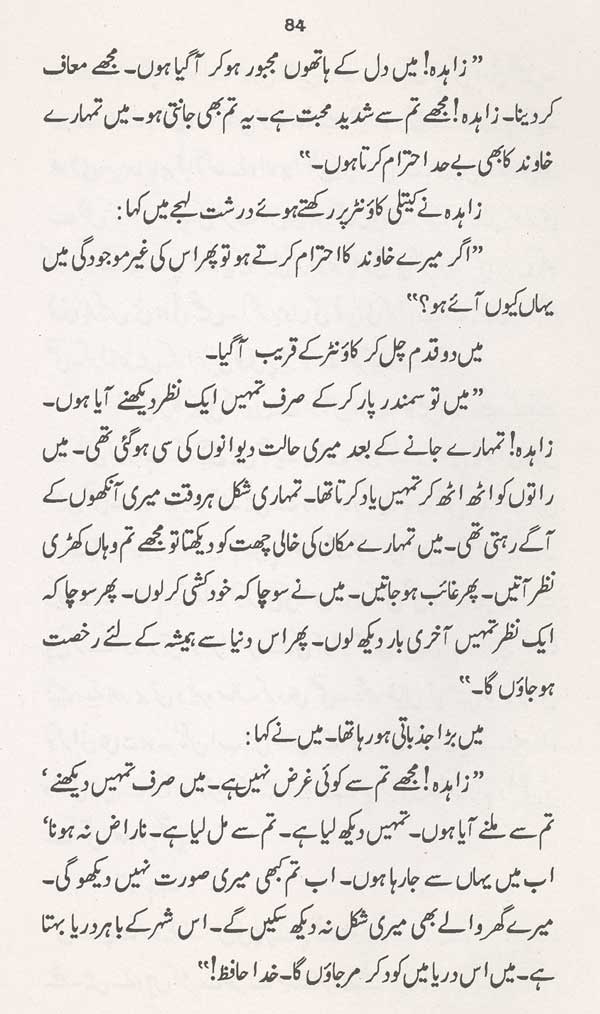 84
”زاہدہ! میں دل کے ہاتھوں مجبور ہو کر آ گیا ہوں۔ مجھے معاف
کر دینا۔ زاہدہ! مجھے تم سے شدید محبت ہے۔ یہ تم بھی جانتی ہو۔ میں تمہارے
خاوند کا بھی بے حد احترام کرتا ہوں۔“
زاہدہ نے کیتلی کاؤنٹر پر رکھتے ہوئے درشت لہجے میں کہا:
”اگر میرے خاوند کا احترام کرتے ہو تو پھر اس کی غیر موجودگی میں
یہاں کیوں آئے ہو؟“
میں دو قدم چل کر کاؤنٹر کے قریب آ گیا۔
”میں تو سمندر پار کر کے صرف تمہیں ایک نظر دیکھنے آیا ہوں۔
زاہدہ! تمہارے جانے کے بعد میری حالت دیوانوں کی سی ہو گئی تھی۔ میں
راتوں کو اٹھ اٹھ کر تمہیں یاد کرتا تھا۔ تمہاری شکل ہر وقت میری آنکھوں کے
آگے رہتی تھی۔ میں تمہارے مکان کی خالی چھت کو دیکھتا تو مجھے تم وہاں کھڑی
نظر آتیں۔ پھر غائب ہو جاتیں۔ میں نے سوچا کہ خودکشی کر لوں۔ پھر سوچا کہ
ایک نظر تمہیں آخری بار دیکھ لوں۔ پھر اس دنیا سے ہمیشہ کے لئے رخصت
ہو جاؤں گا۔“
میں بڑا جذباتی ہو رہا تھا۔ میں نے کہا:
”زاہدہ! مجھے تم سے کوئی غرض نہیں ہے۔ میں صرف تمہیں دیکھنے‘
تم سے ملنے آیا ہوں۔ تمہیں دیکھ لیا ہے۔ تم سے مل لیا ہے۔ ناراض نہ ہونا‘
اب میں یہاں سے جا رہا ہوں۔ اب تم کبھی میری صورت نہیں دیکھو گی۔
میرے گھر والے بھی میری شکل نہ دیکھ سکیں گے۔ اس شہر کے باہر دریا بہتا
ہے۔ میں اس دریا میں کود کر مر جاؤں گا۔ خدا حافظ!“